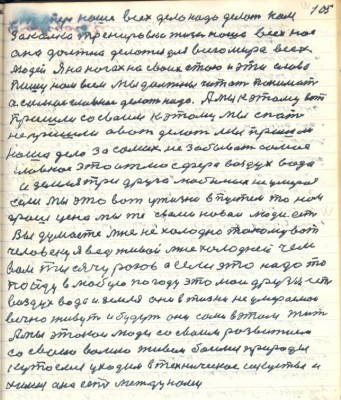 105
наше всех дело надо делат нам
Закалка тренировка жизн наша всех нас
она должна делатся для всего мира всех
людей Я на ногах на своих стою и эти слова
пишу нам всем Мы должны читат понимат
а самое главное делат надо. А мы к этому вот
пришли со своим к этому мы спат
не пришли а вот делат мы пришли
наше дело за самих не забыват самое
главное это атмосфера воздух вода
и земля три друга любимых не умират
если мы это вот у жизн впустем то нам
цена мы же с вами новая люди ест
Вы думаете мне не холодно такому вот
человеку я вед живой мне холодней чем
вам тисячу разов а если это надо то
пойду в любую погоду это мои друзья ест
воздух вода и земля они в жизне не умирают
вечно живут и будут они сами в этом жит
А мы этакои люди со своим развитием
со своею волею живем боимся природы
кутаемся уходим в техническое искуства и
химия она ест между нами